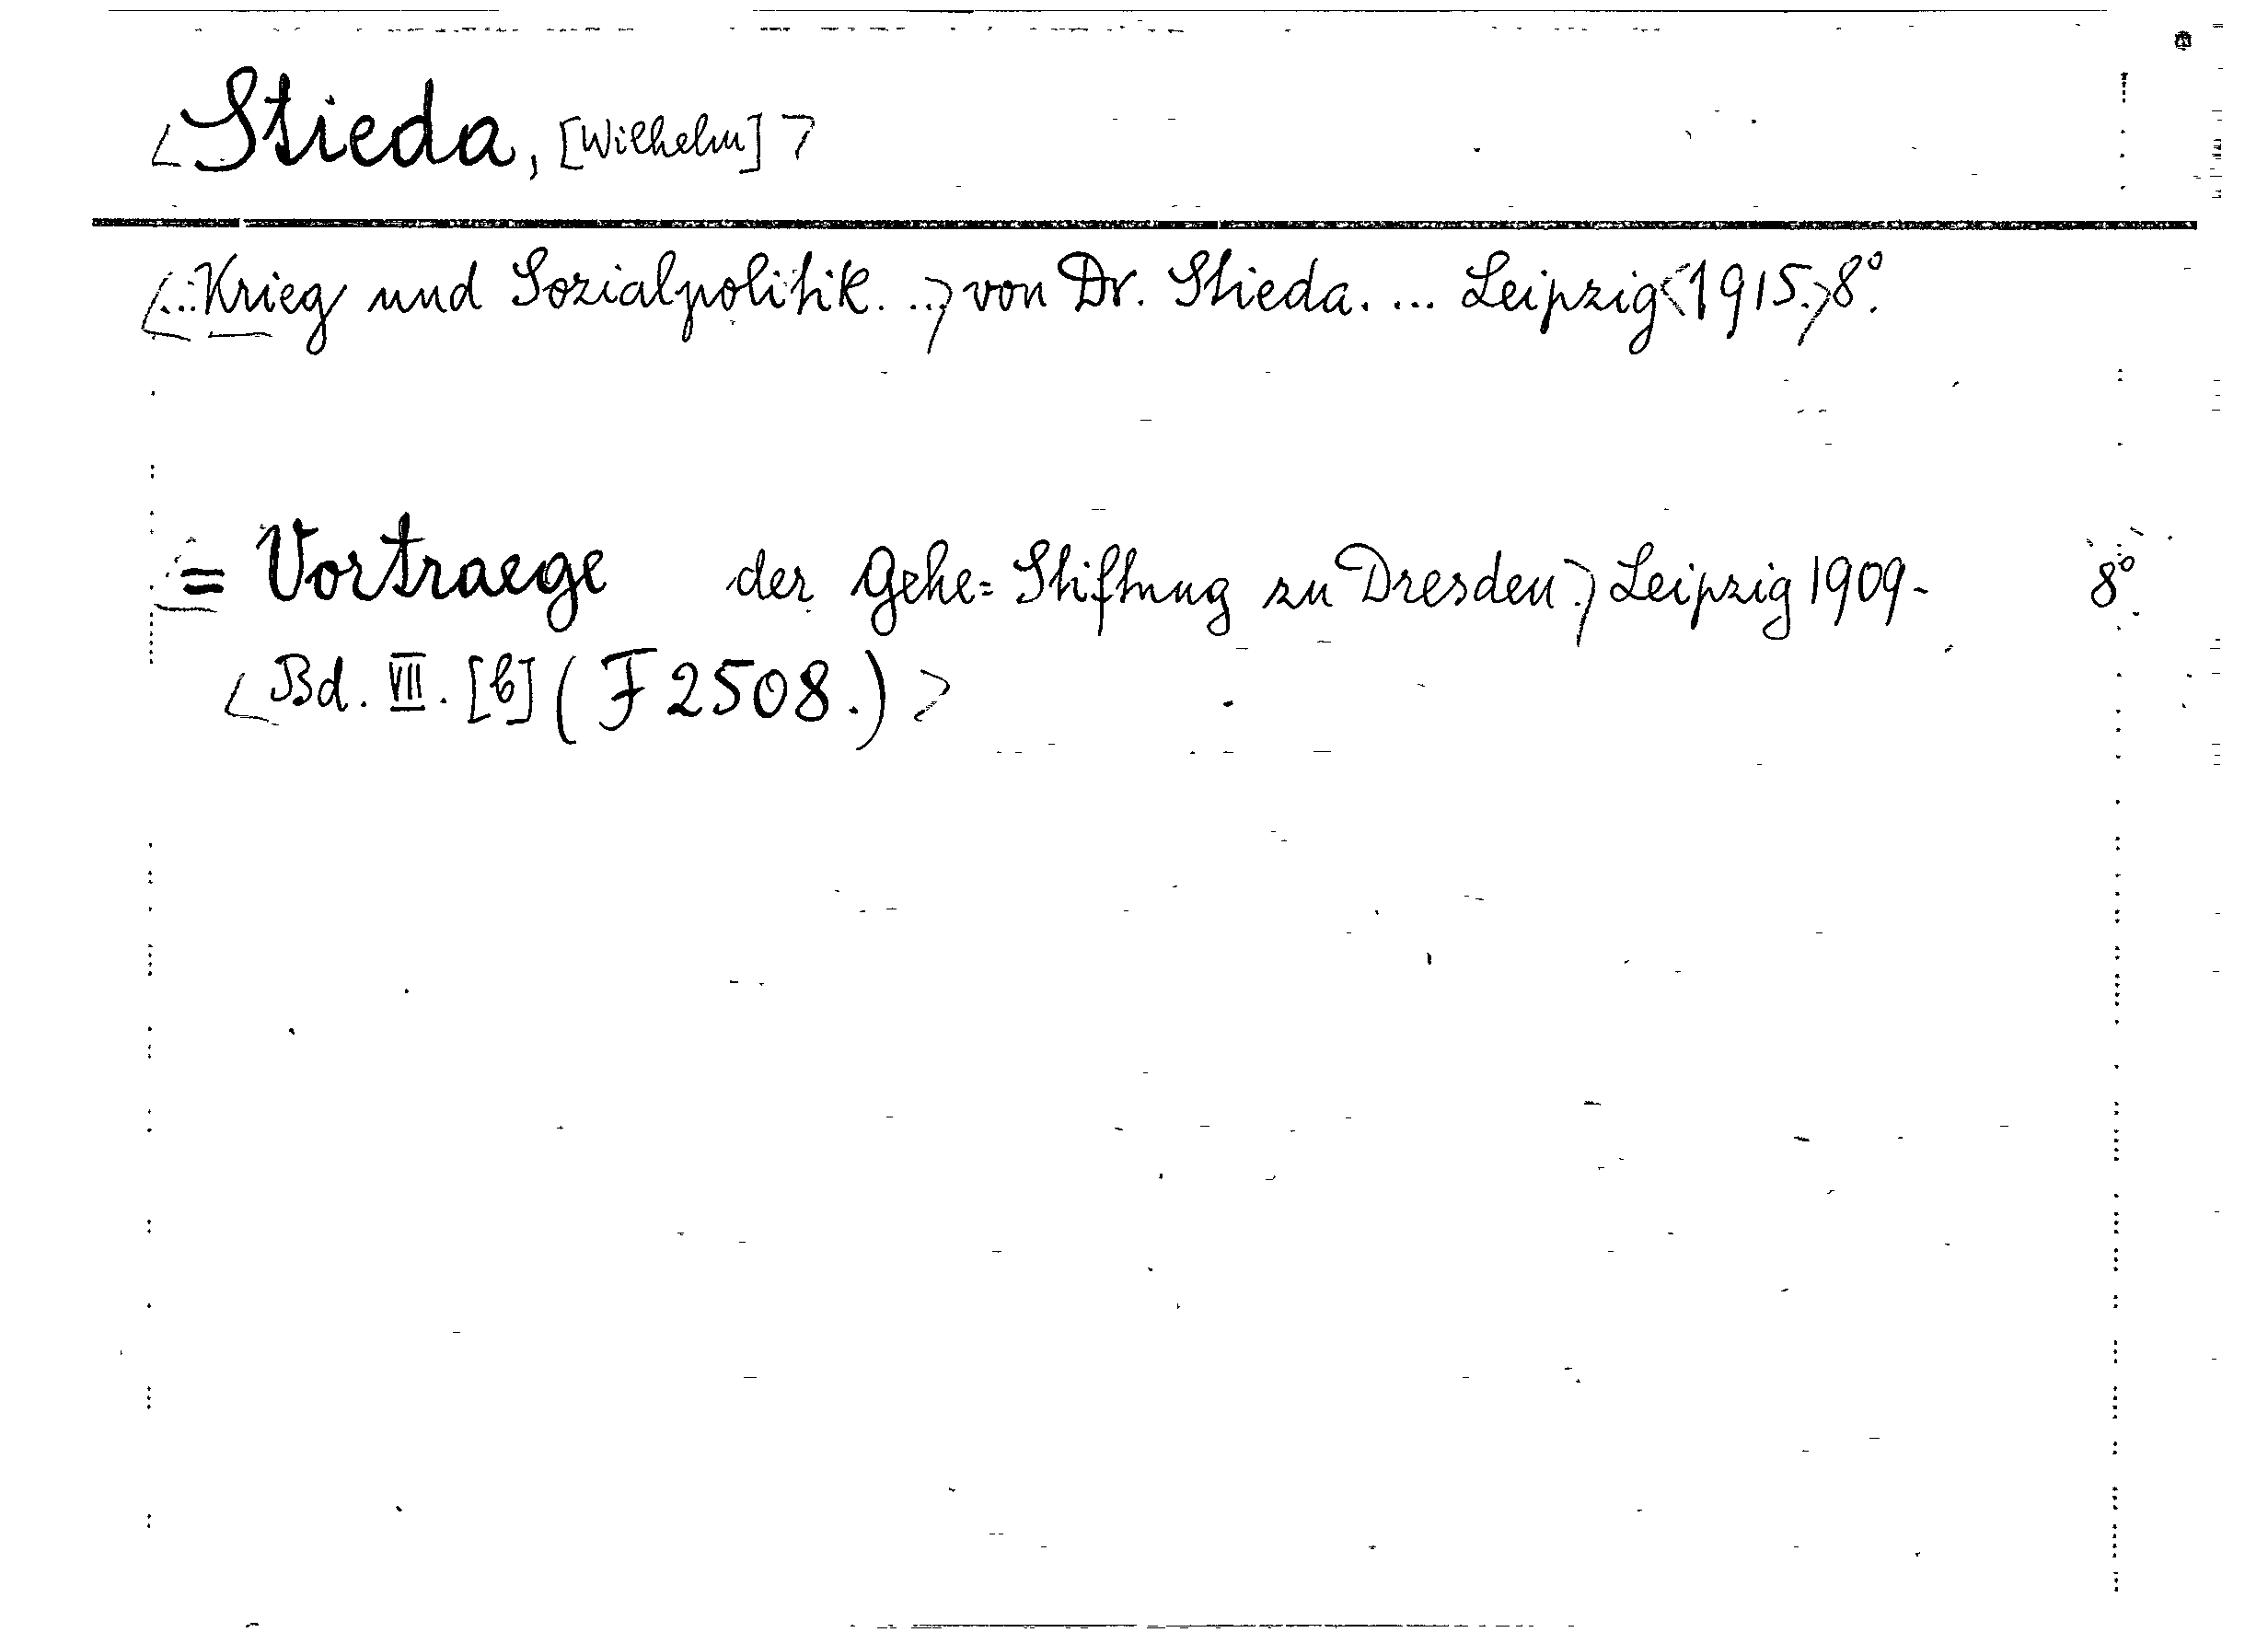 <Stieda, [Wilhelm]>
<...Krieg und Sozialpolitik. ..> von Dr. Stieda. ... Leipzig <1915.> 8º.
<= Vortraege der Gehe=Stiftung zu Dresden.> Leipzig 1909- 8º.
<Bd. VII. [6] (F 2508.)>